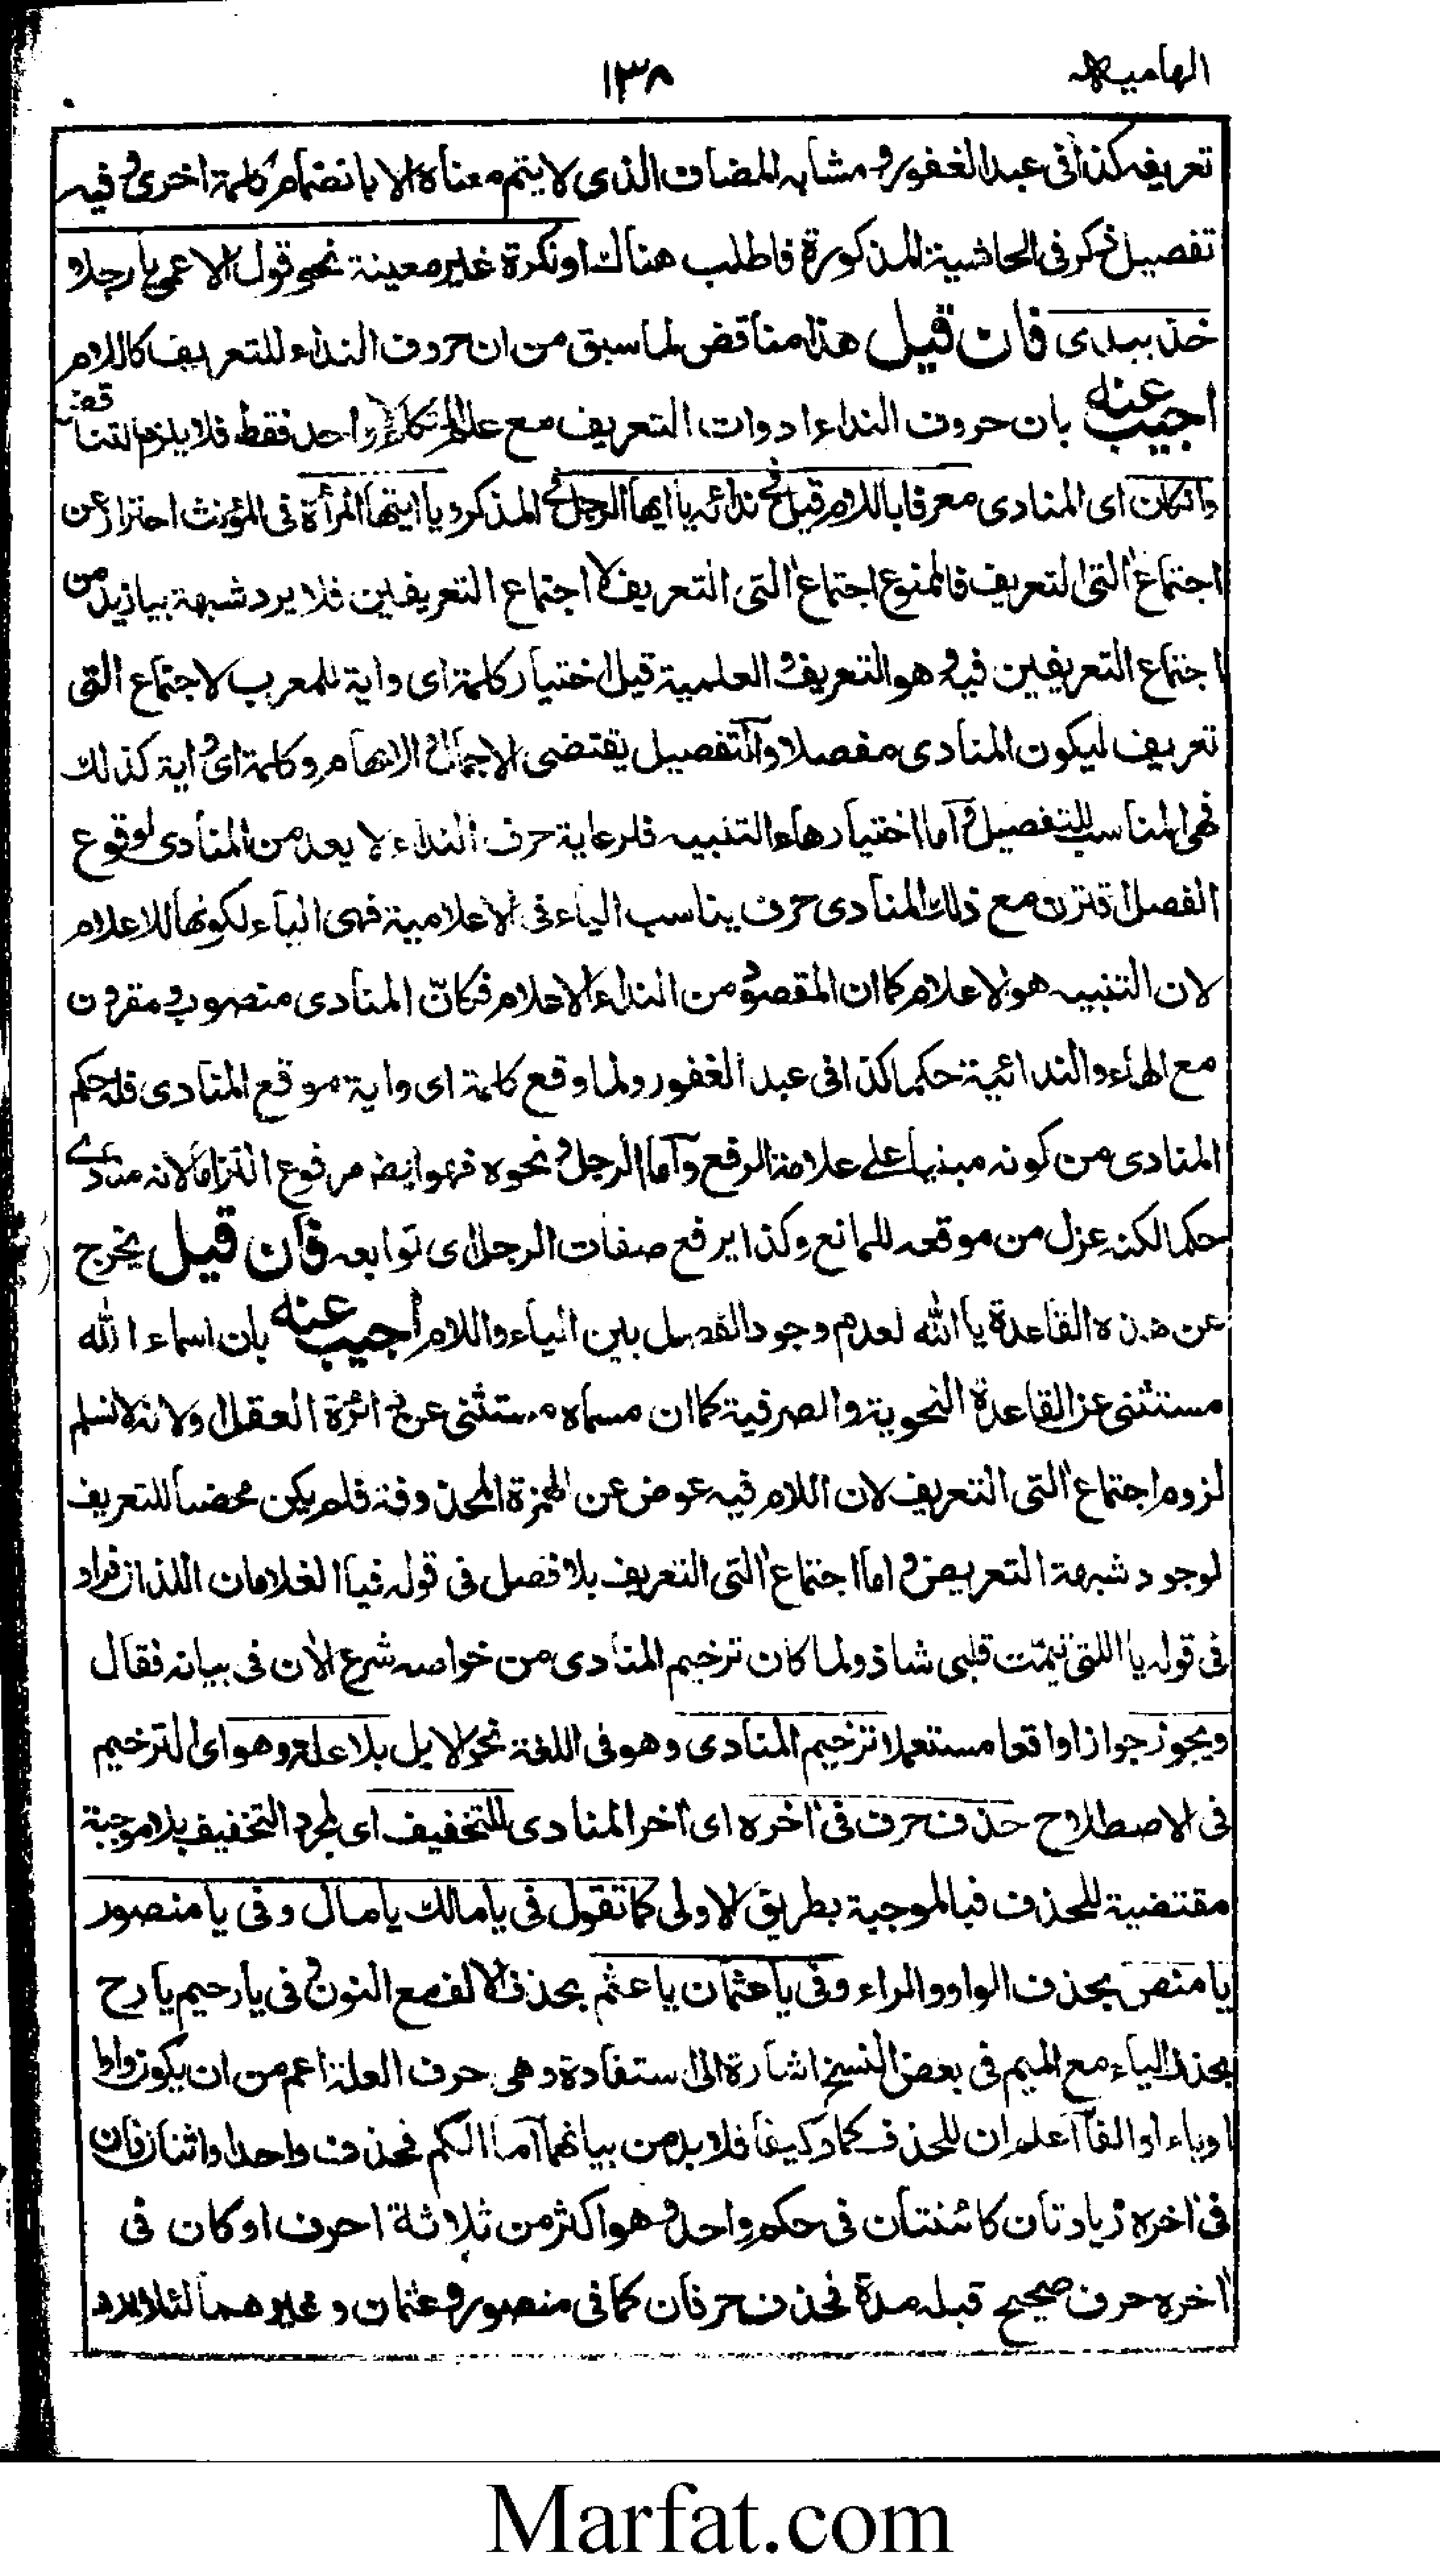 الهامية
١٣٨
تعريفه كذا فى عبد الغفور و مشابه المضاف الذى لا يتم معناه الا بانضمام كلمة اخرى و فيه
تفصيل ذكر فى الحاشية المذكورة فاطلب هناك او نكرة غير معينة نحو قول الاعمى يا رجلا
خذ بيدى فان قيل هذا مناقض لما سبق من ان حروف النداء للتعريف كاللام
اجيب عنه بان حروف النداء ادوات التعريف مع علم المتكلم واحد فقط فلا يلزم التناقض
وان كان اى المنادى معرفا باللام قيل نحو ندائه يا ايها الرجل المذكر و يا ايتها المرأة فى المؤنث احتراز عن
اجتماع اٰلتى التعريف فالممنوع اجتماع اٰلتى التعريف لا اجتماع التعريفين فلا يرد شبهة بيا زيد من
اجتماع التعريفين فيه و هو التعريف و العلمية قيل اختيار كلمة اى و اية للمعرب لاجتماع التى
تعريف ليكون المنادى مفصلا و التفصيل يقتضى الاجمال و الابهام و كلمة اى و اية كذلك
فهى المناسب للتفصيل و اما اختيار هاء التنبيه فلرعاية حرف النداء لا يعد من المنادى لوقوع
الفصل اقترن مع ذلك المنادى حرف يناسب الياء فى الاعلامية فهى الهاء لكونها للاعلام
لان التنبيه هو الاعلام كما ان المقصود من النداء الاعلام فكانّ المنادى منصوب و مقرون
مع الهاء و الندائية حكما كذا فى عبد الغفور و لما وقع كلمة اى و اية موقع المنادى فله حكم
المنادى من كونه مبنيا على علامة الرفع و اما الرجل و نحوه فهو ايضا مرفوع التزاما لانه منادى
حكما لكنه عزل من موقعه للمانع و كذا يرفع صفات الرجل اى توابعه فان قيل يخرج
عن هذه القاعدة يا الله لعدم وجود الفصل بين الياء و اللام اجيب عنه بان اسماء الله
مستثنى عن القاعدة النحوية و الصرفية كما ان مسماه مستثنى عن دائرة العقل او لانه لا نسلم
لزوم اجتماع اٰلتى التعريف لان اللام فيه عوض عن الهمزة المحذوفة فلم يكن محضا للتعريف
لوجود شبهة التعويض و اما اجتماع اٰلتى التعريف بلا فصل فى قوله فيا الغلامان اللذان فرا و
فى قوله يا اللتى تيّمت قلبى شاذ و لما كان ترخيم المنادى من خواصه شرع الاٰن فى بيانه فقال
و يجوز جوازا واقعا مستعملا ترخيم المنادى و هو فى اللغة بلا علة و هو اى الترخيم
فى الاصطلاح حذف حرف فى اٰخره اى اٰخر المنادى للتخفيف اى لمجرد التخفيف بلا موجبة
مقتضية للحذف فبالموجبة بطريق الاولى كما تقول فى يا مالك يا مال و فى يا منصور
يا منص بحذف الواو و الراء و فى يا عثمان يا عثم بحذف الالف مع النون و فى يا رحيم يا رح
بحذف الياء مع الميم فى بعض النسخ اشارة الى استفادة و هى حرف العلة اعم من ان يكون واوا
او ياء او الفا اعلم ان للحذف كما و كيفا فلا بد من بيانهما اما الكم فحذف واحد او اثنان فان
فى اٰخره زيادتان كائنتان فى حكم واحد و هو اكثر من ثلاثة احرف او كان فى
اٰخره حرف صحيح قبله مدة فحذف حرفان كما فى منصور و عثمان و غيرهما لئلا يرد
Marfat.com